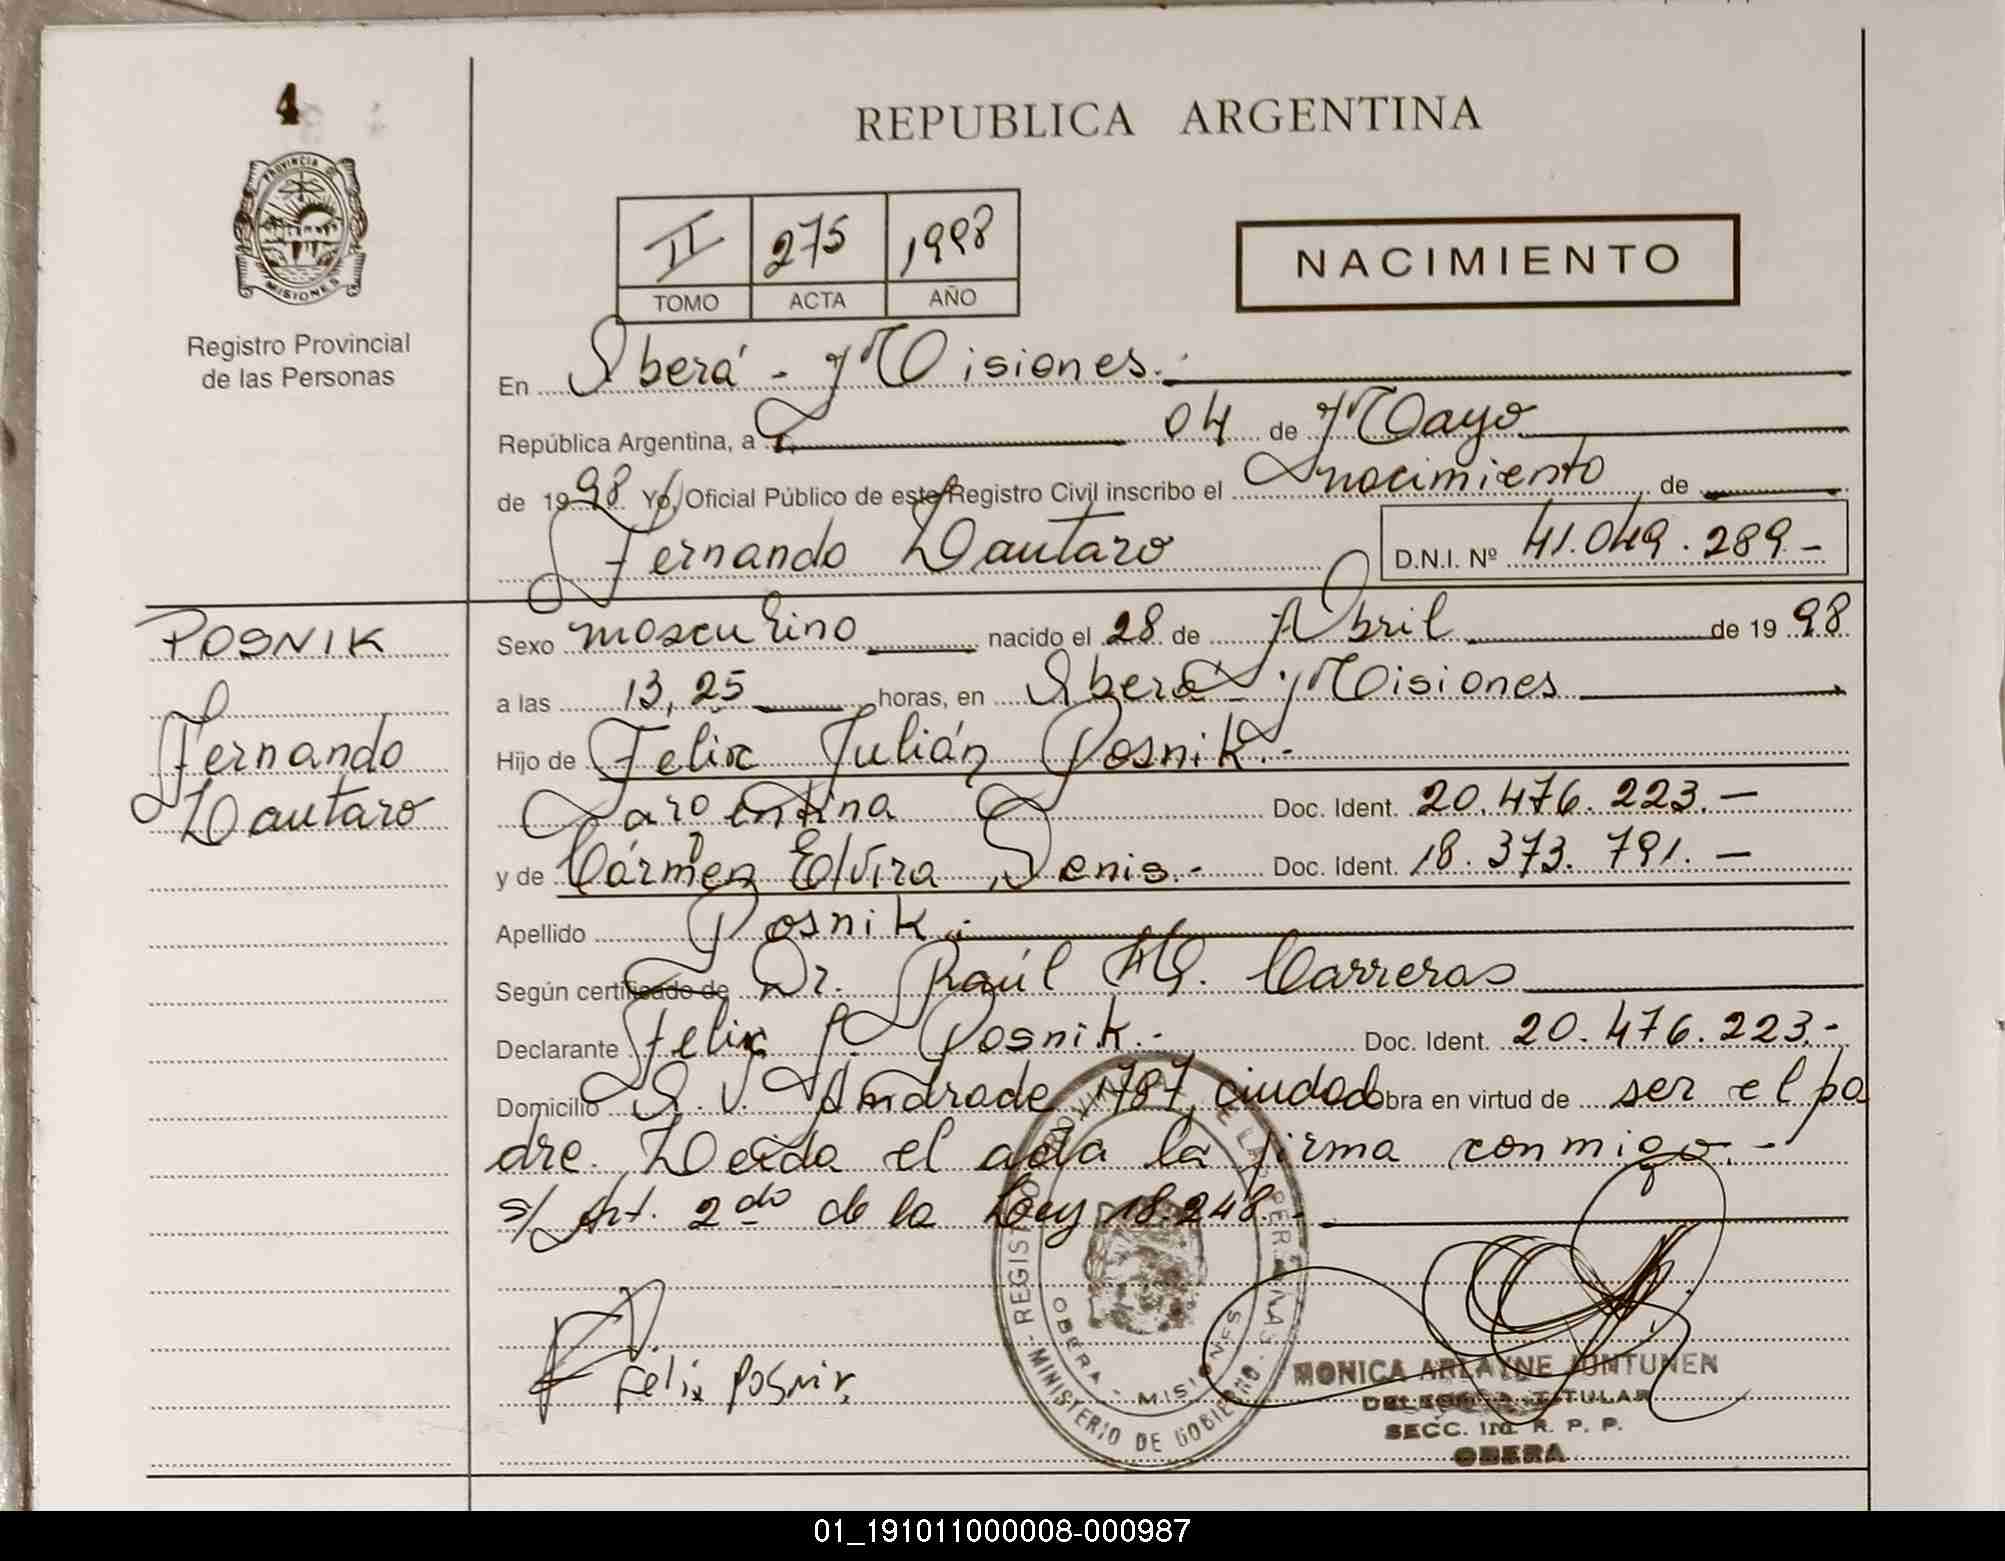 4
REPUBLICA ARGENTINA
PROVINCIA DE
MISIONES
Registro Provincial
de las Personas
II 275 1998
TOMO ACTA AÑO
NACIMIENTO
En Oberá - Misiones.
República Argentina, a 04 de Mayo
de 1998 Yo, Oficial Público de este Registro Civil inscribo el nacimiento de
Fernando Lautaro D.N.I. Nº 41.049.289.-
POSNIK
Fernando
Lautaro
Sexo masculino nacido el 28 de Abril de 1998
a las 13,25 horas, en Oberá Misiones
Hijo de Felix Julián Posnik.-
Argentina Doc. Ident. 20.476.223.-
y de Cármen Elvira Denis.- Doc. Ident. 18.373.791.-
Apellido Posnik.-
Según certificado de Dr. Raúl Carreras
Declarante Felix J. Posnik.- Doc. Ident. 20.476.223.-
Domicilio Andrade 1787, ciudad obra en virtud de ser el pa
dre. Leída el acta la firma conmigo.-
s/ Art. 2do de la Ley 18.248.-
Felix Posnik
REGISTRO PROVINCIAL DE LAS PERSONAS
MINISTERIO DE GOBIERNO
OBERA - MISIONES
MONICA ARLAYNE JUNTUNEN
DELEGADA TITULAR
SECC. 1ra. R. P. P.
OBERA
01_191011000008-000987